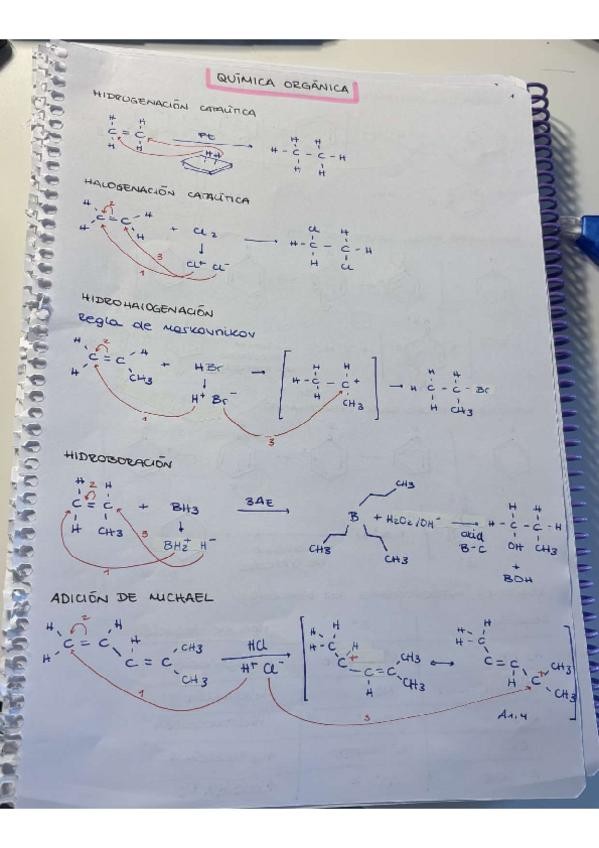 QUÍMICA ORGÁNICA
HIDROGENACIÓN CATALÍTICA
H H
C = C
H H
Pt
H H
H H
H - C - C - H
H H
HALOGENACIÓN CATALÍTICA
2
H H
C = C + Cl2
H H
Cl+ Cl-
1 3
Cl H
H - C - C - H
H Cl
HIDROHALOGENACIÓN
Regla de Markovnikov
2
H H
C = C + HBr
H CH3
H+ Br-
1 3
H H
H - C - C+
H CH3
H H
H - C - C - Br
H CH3
HIDROBORACIÓN
H 2 H
C = C + BH3
H CH3
BH2+ H-
1 3
3AE
CH3
B + H2O2/OH-
CH3 CH3
oxid
B-C
H H
H - C - C - H
OH CH3
+
BOH
ADICIÓN DE MICHAEL
2
H H
C = C H
H C = C CH3
CH3
HCl
H+ Cl-
1 3
H
H - C H
C+ C = C CH3
H CH3
H
H - C - H
C = C
H C+ CH3
CH3
A1,4